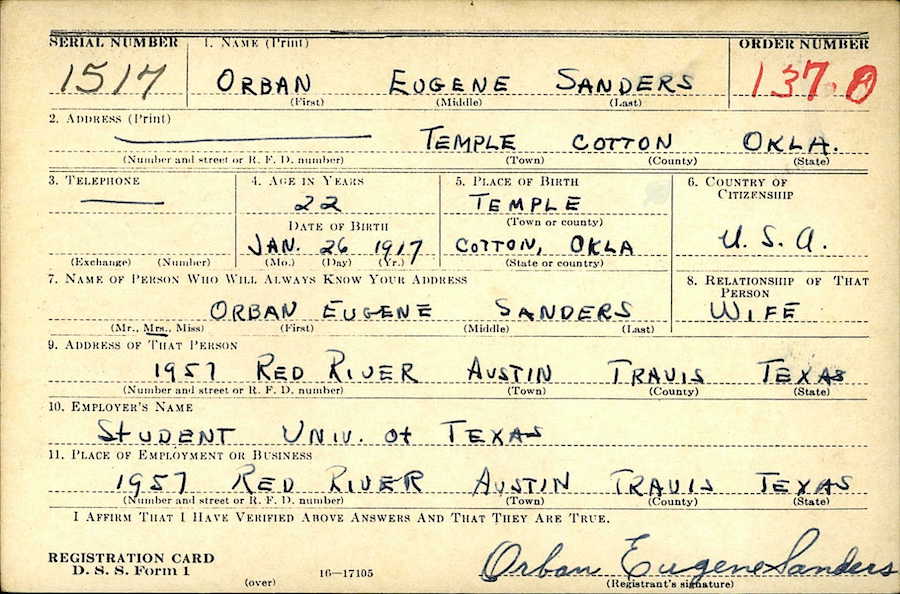 SERIAL NUMBER 1. NAME (Print) ORDER NUMBER
1517 ORBAN EUGENE SANDERS 137.0
(First) (Middle) (Last)
2. ADDRESS (Print)
TEMPLE COTTON OKLA.
(Number and street or R. F. D. number) (Town) (County) (State)
3. TELEPHONE 4. AGE IN YEARS 5. PLACE OF BIRTH 6. COUNTRY OF CITIZENSHIP
22 TEMPLE
DATE OF BIRTH (Town or county)
JAN. 26 1917 COTTON, OKLA U. S. A.
(Exchange) (Number) (Mo.) (Day) (Yr.) (State or country)
7. NAME OF PERSON WHO WILL ALWAYS KNOW YOUR ADDRESS 8. RELATIONSHIP OF THAT PERSON
ORBAN EUGENE SANDERS WIFE
(Mr., Mrs., Miss) (First) (Middle) (Last)
9. ADDRESS OF THAT PERSON
1957 RED RIVER AUSTIN TRAVIS TEXAS
(Number and street or R. F. D. number) (Town) (County) (State)
10. EMPLOYER'S NAME
STUDENT UNIV. of TEXAS
11. PLACE OF EMPLOYMENT OR BUSINESS
1957 RED RIVER AUSTIN TRAVIS TEXAS
(Number and street or R. F. D. number) (Town) (County) (State)
I AFFIRM THAT I HAVE VERIFIED ABOVE ANSWERS AND THAT THEY ARE TRUE.
REGISTRATION CARD
D. S. S. Form 1 (over) 16—17105
Orban Eugene Sanders
(Registrant's signature)